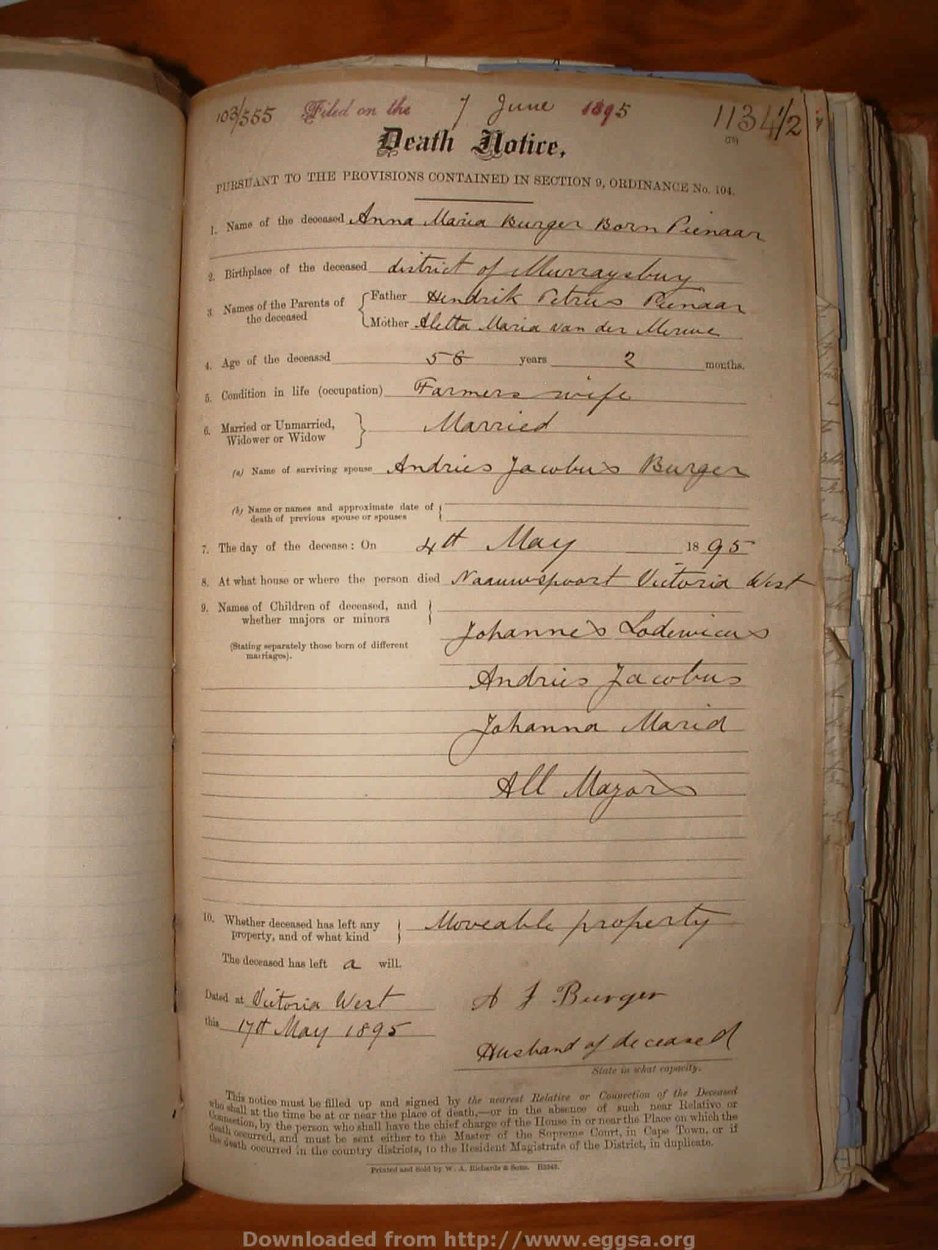 103/555 Filed on the 7 June 1895 1134 1/2
Death Notice,
PURSUANT TO THE PROVISIONS CONTAINED IN SECTION 9, ORDINANCE No. 104.
1. Name of the deceased Anna Maria Burger Born Pienaar
2. Birthplace of the deceased district of Murraysbury
3. Names of the Parents of the deceased { Father Hendrik Petrus Pienaar
Mother Aletta Maria van der Merwe
4. Age of the deceased 58 years 2 months.
5. Condition in life (occupation) Farmers wife
6. Married or Unmarried, Widower or Widow } Married
(a) Name of surviving spouse Andries Jacobus Burger
(b) Name or names and approximate date of
death of previous spouse or spouses {
7. The day of the decease: On 4th May 1895
8. At what house or where the person died Naauwspoort Victoria West
9. Names of Children of deceased, and
whether majors or minors }
Johannes Lodewicus
(Stating separately those born of different
marriages).
Andries Jacobus
Johanna Maria
All Majors
10. Whether deceased has left any
property, and of what kind } Moveable property
The deceased has left a will.
Dated at Victoria West A J Burger
this 17th May 1895
Husband of deceased
State in what capacity.
This notice must be filled up and signed by the nearest Relative or Connection of the Deceased
who shall at the time be at or near the place of death,—or in the absence of such near Relative or
Connection, by the person who shall have the chief charge of the House in or near the Place on which the
death occurred, and must be sent either to the Master of the Supreme Court, in Cape Town, or if
the death occurred in the country districts, to the Resident Magistrate of the District, in duplicate.
Printed and Sold by W. A. Richards & Sons.
Downloaded from http://www.eggsa.org